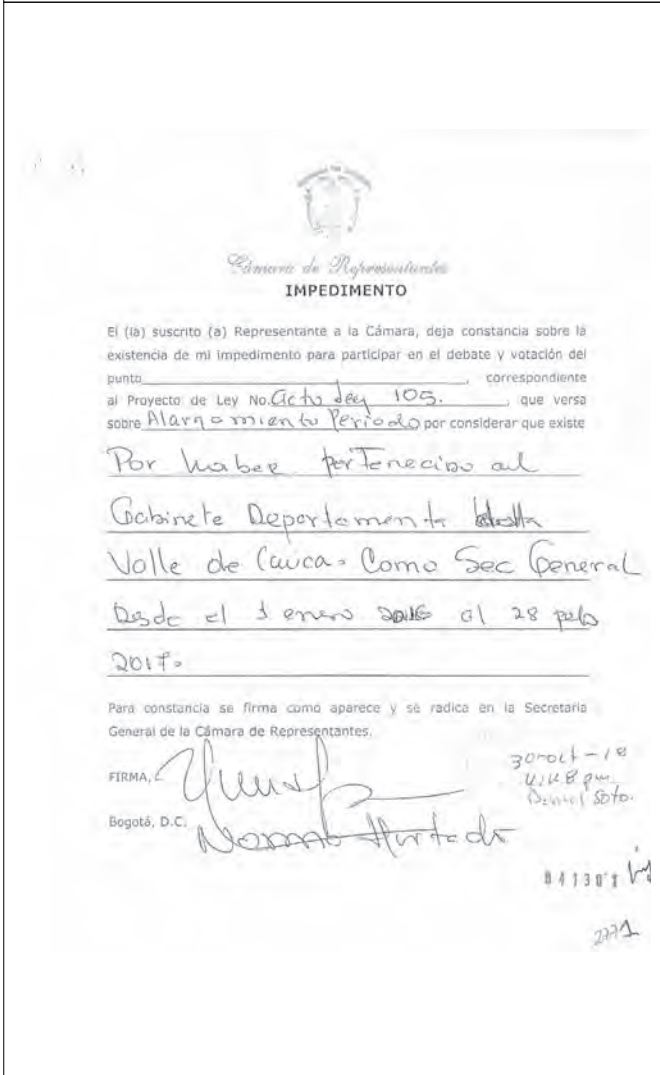 Cámara de Representantes
IMPEDIMENTO
El (la) suscrito (a) Representante a la Cámara, deja constancia sobre la
existencia de mi impedimento para participar en el debate y votación del
punto____________________, correspondiente
al Proyecto de Ley No. Acto Leg 105. , que versa
sobre Alargamiento Periodo por considerar que existe
Por haber pertenecido al
Gabinete Departamento
Valle de Cauca. Como Sec General
Desde el 1 enero 2016 al 28
2017.
Para constancia se firma como aparece y se radica en la Secretaria
General de la Cámara de Representantes.
FIRMA,
30-oct-18
Daniel Soto.
Bogotá, D.C.
Norma Hurtado
2771